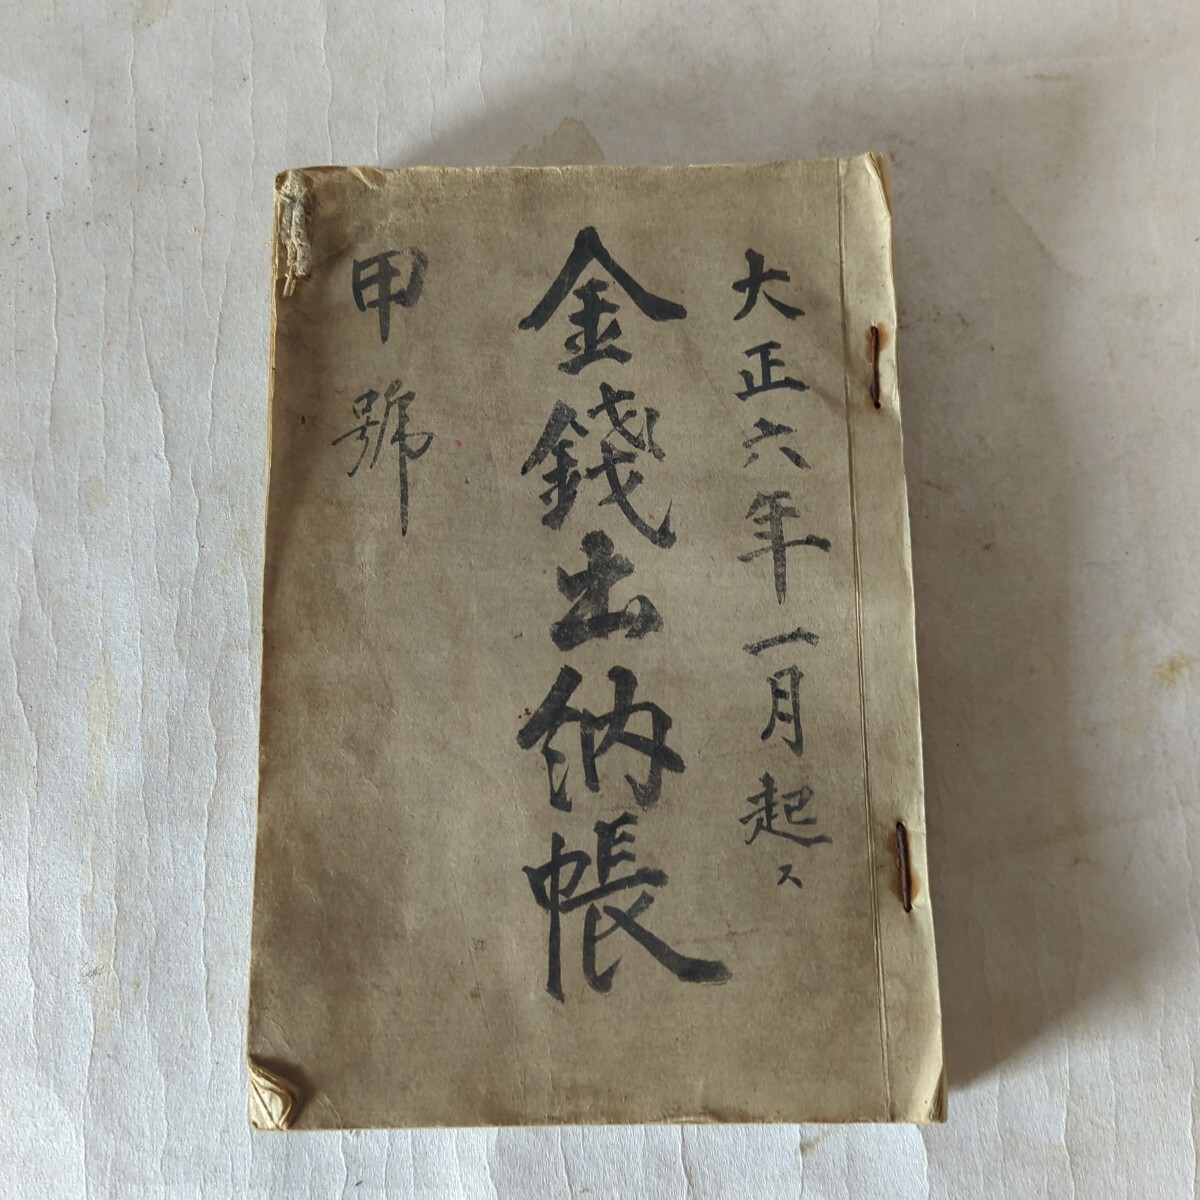 大正六年一月起ス
金錢出納帳
甲號